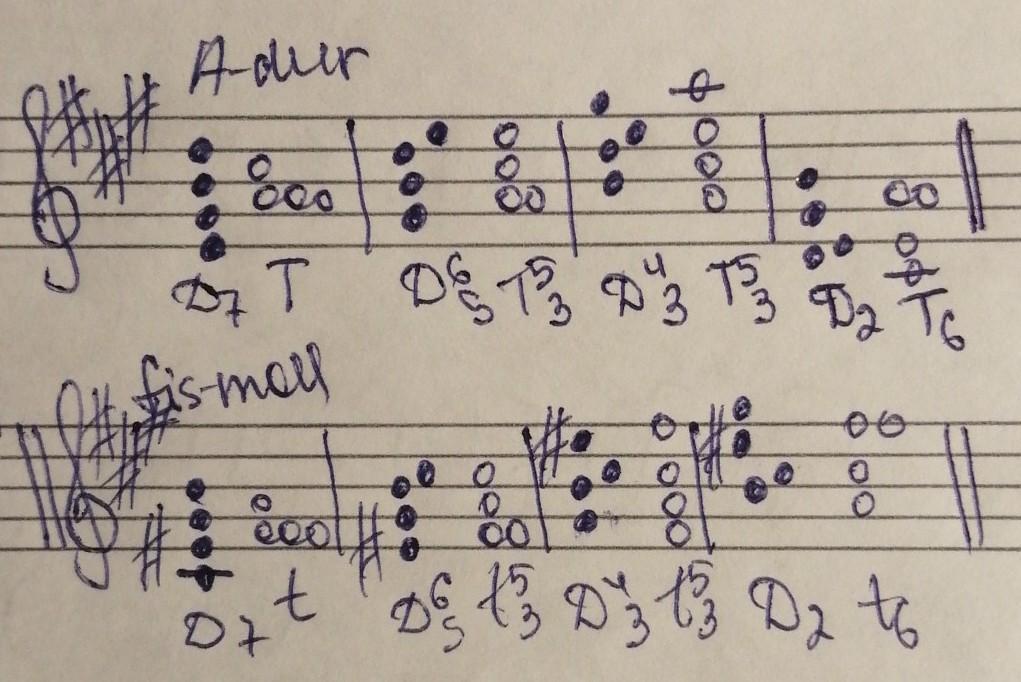 A-dur
D7 T D6/5 T5/3 D4/3 T5/3 D2 T6
fis-moll
D7 t D6/5 t5/3 D4/3 t5/3 D2 t6